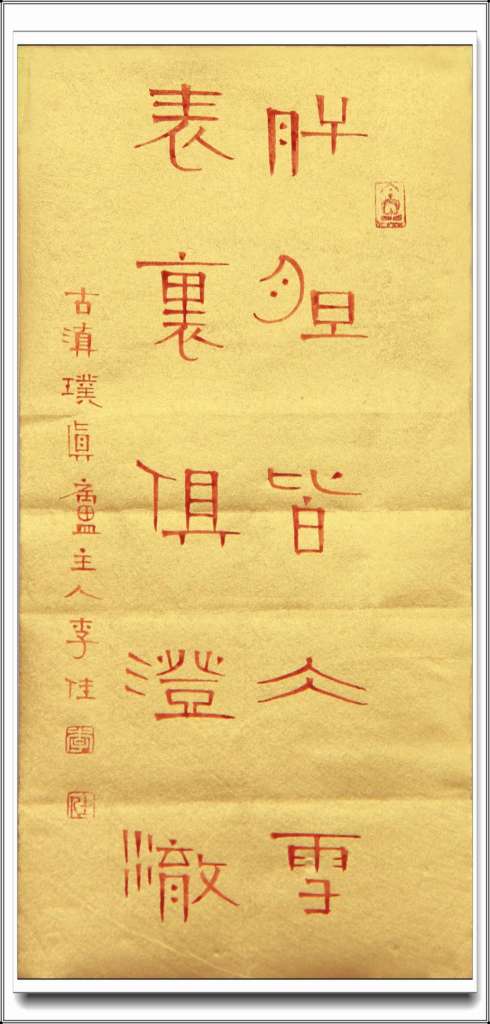 肝胆皆仌雪
表裏俱澄澈
古滇璞眞廬主人李佳